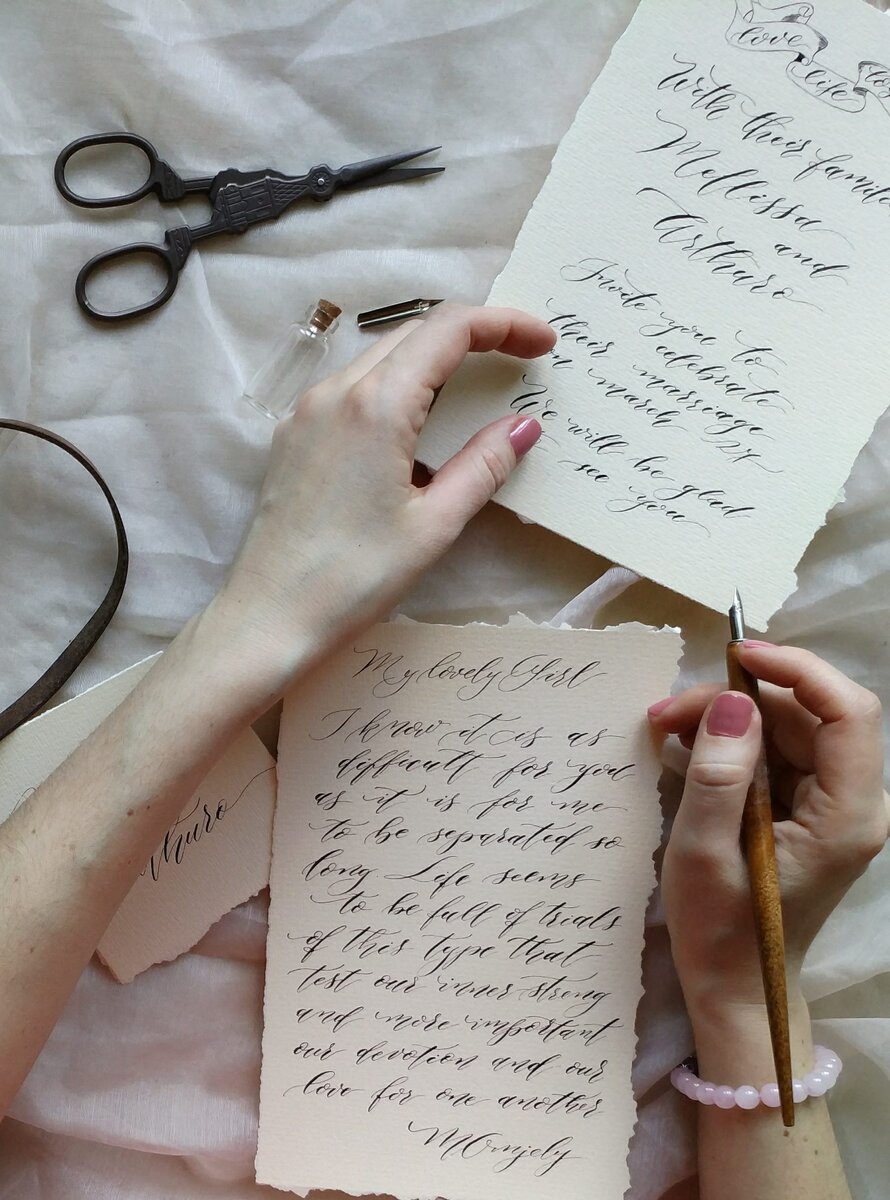 love
life
With their famile
Mellissa
and
Arthuro
Invite you to
celebrate
their marriage
on march 27
We will be glad
to see you
My lovely Girl
I know it is as
difficult for you
as it is for me
to be separated so
long. Life seems
to be full of trials
of this type that
test our inner streng
and more important
our devotion and our
love for one another
thuro